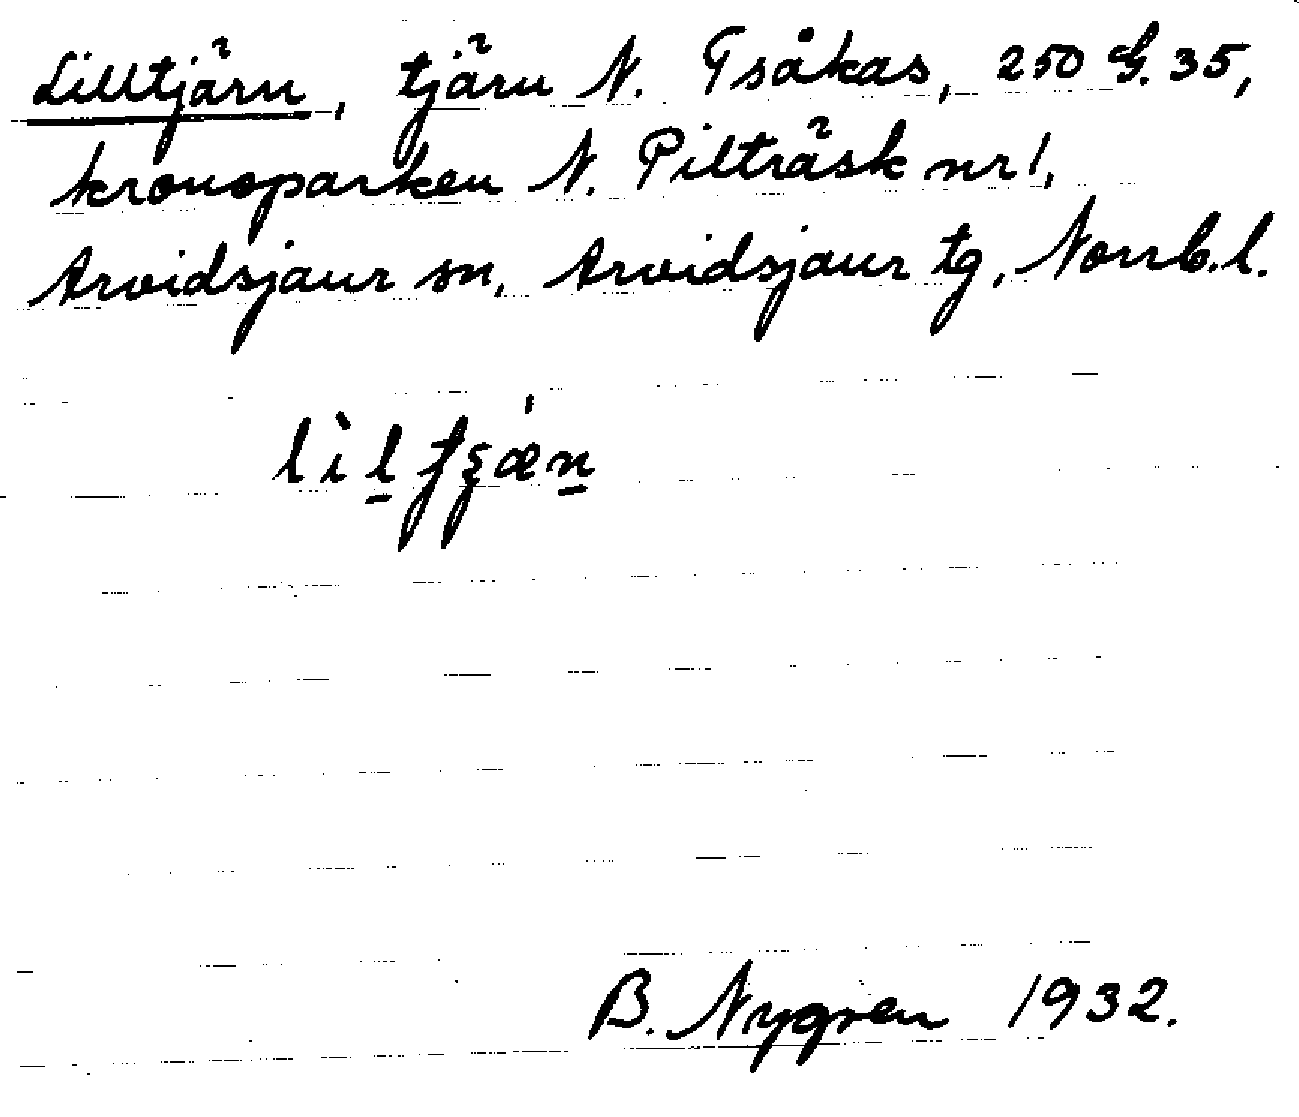 Lilltjärn, tjärn N. Tsåkas, 250 G. 35,
kronoparken N. Pilträsk nr 1,
Arvidsjaur sn, Arvidsjaur tg, Norrb.l.
lìl̲ʃʂæ'n̲
B. Nygren 1932.